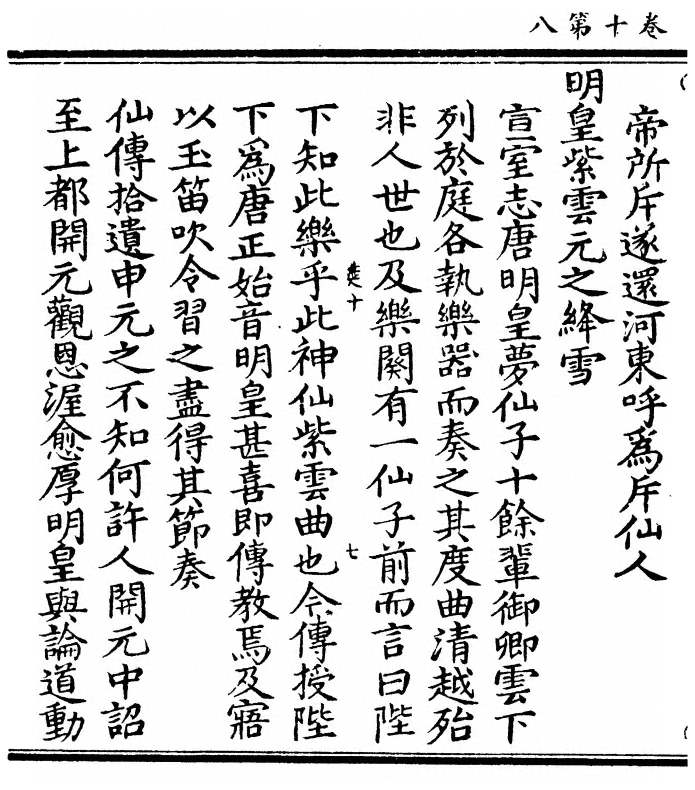 卷十第八
帝所斥遂還河東呼爲斥仙人
明皇紫雲元之絳雪
宣室志唐明皇夢仙子十餘輩御卿雲下
列於庭各執樂器而奏之其度曲清越殆
非人世也及樂闋有一仙子前而言曰陛
十 七
下知此樂乎此神仙紫雲曲也今傳授陛
下爲唐正始音明皇甚喜即傳教焉及寤
以玉笛吹令習之盡得其節奏
仙傳拾遺申元之不知何許人開元中詔
至上都開元觀恩渥愈厚明皇與論道動